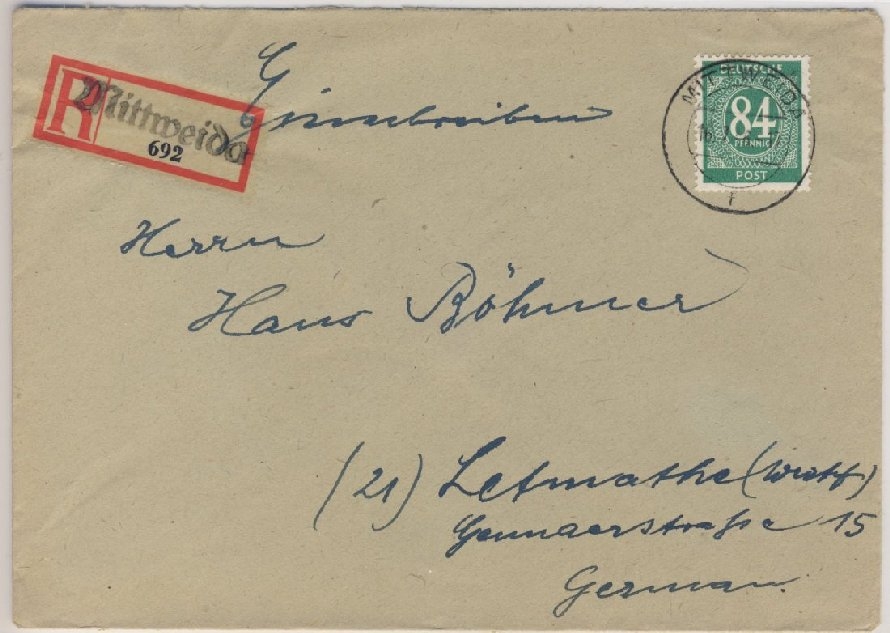 R Mittweida
692
Einschreiben
DEUTSCHE
84
PFENNIG
POST
MITTWEIDA
Herrn
Hans Böhmer
(21) Letmathe (Westf)
Gennaerstraße 15
German.